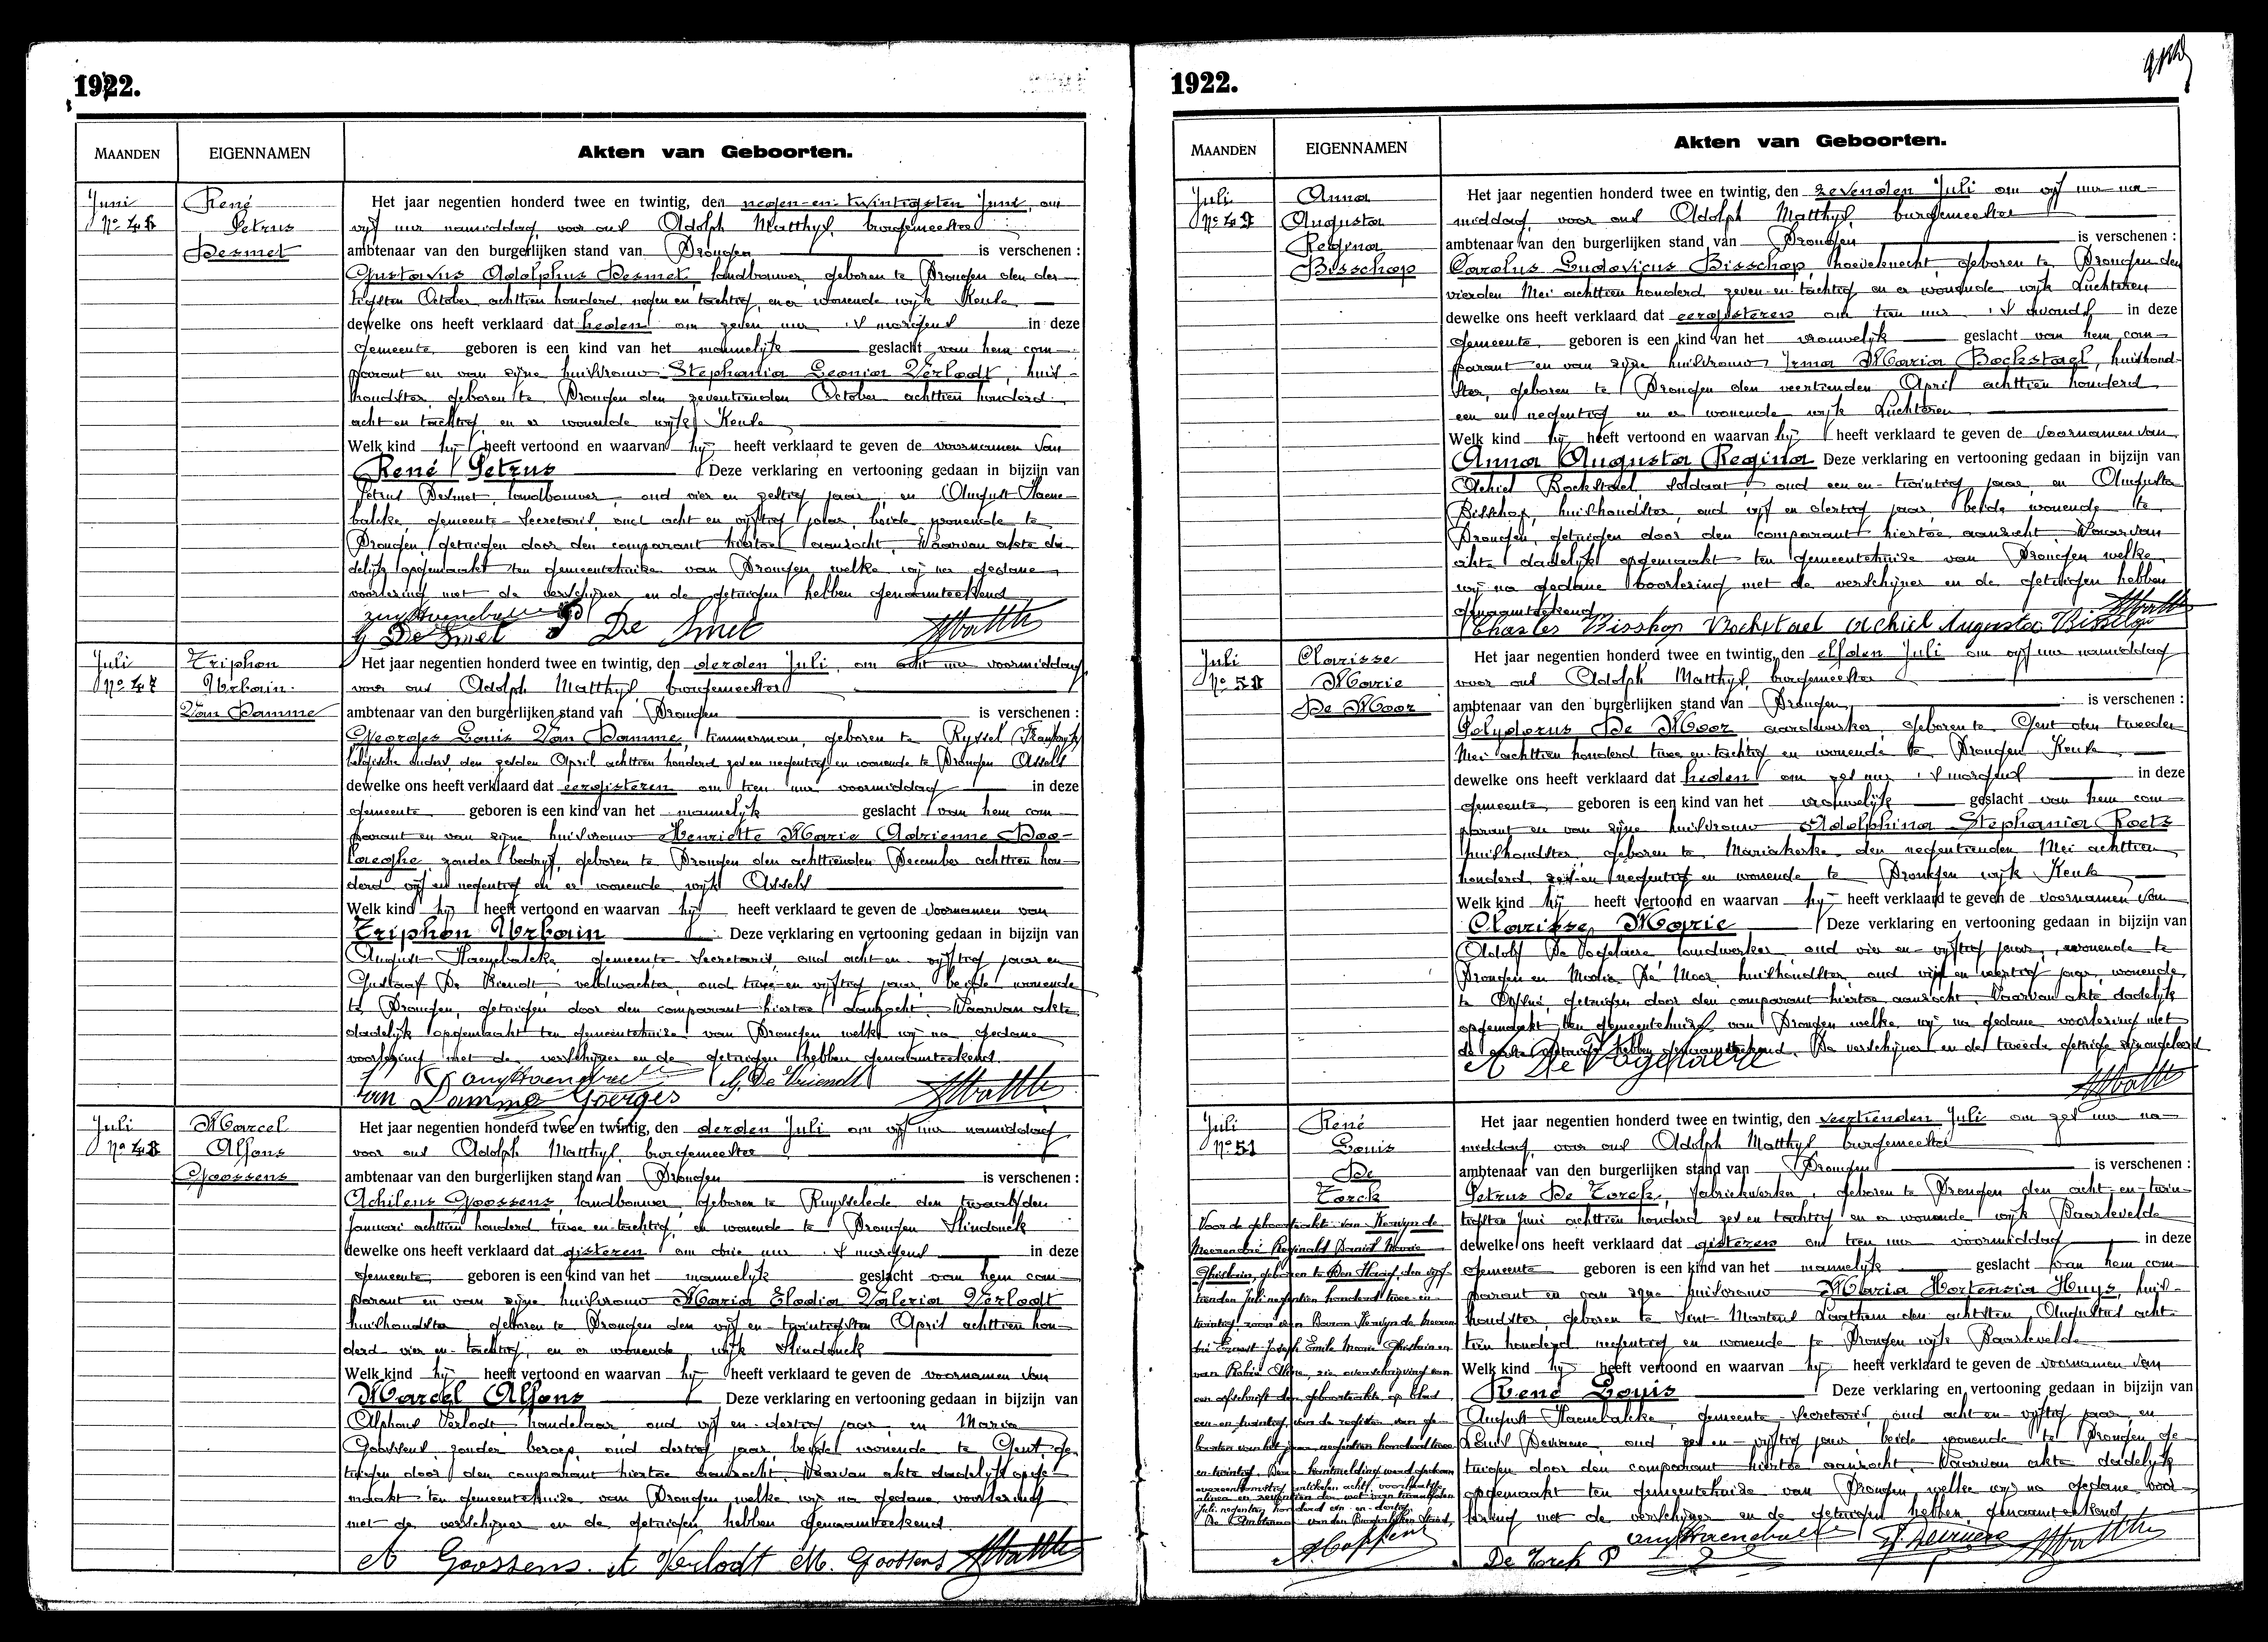 1922.
MAANDEN EIGENNAMEN Akten van Geboorten.
Juni
No 46
René
Petrus
Desmet
Het jaar negentien honderd twee en twintig, den negen-en-twintigsten Juni, om
vijf uur namiddag, voor ons Adolph Matthys, burgemeester
ambtenaar van den burgerlijken stand van Drongen is verschenen :
Gustavus Adolphus Desmet, landbouwer, geboren te Drongen den der-
tigsten October achttien honderd negen en tachtig, en er wonende wijk Keule
dewelke ons heeft verklaard dat heden om zeven uur 's morgens in deze
gemeente geboren is een kind van het mannelijk geslacht van hem com-
parant en van zijne huisvrouw Stephania Leonia Verlodt, huis-
houdster, geboren te Drongen den zeventienden October achttien honderd
acht en tachtig, en er wonende wijk Keule
Welk kind hij heeft vertoond en waarvan hij heeft verklaard te geven de voornamen van
René Petrus Deze verklaring en vertooning gedaan in bijzijn van
Petrus Desmet, landbouwer, oud vier en zestig jaar, en August Haene-
balcke, gemeente-secretaris, oud acht en vijftig jaar, beide wonende te
Drongen, getuigen door den comparant hiertoe aanzocht. Waarvan akte da-
delijk opgemaakt ten gemeentehuize van Drongen welke wij na gedane
voorlezing met de verschijner en de getuigen hebben genaamteekend
G De Smet P De Smet
Juli
No 47
Triphon
Urbain
Van Damme
Het jaar negentien honderd twee en twintig, den derden Juli, om acht uur voormiddag
voor ons Adolph Matthys, burgemeester
ambtenaar van den burgerlijken stand van Drongen is verschenen :
Georges Louis Van Damme, timmerman, geboren te Ryssel (Frankrijk)
belgische ouders, den zesden April achttien honderd zes en negentig en wonende te Drongen Assels
dewelke ons heeft verklaard dat eergisteren om tien uur voormiddag in deze
gemeente geboren is een kind van het mannelijk geslacht van hem com-
parant en van zijne huisvrouw Henriette Marie Adrienne Doo-
laeghe, zonder bedrijf, geboren te Drongen den achttienden December achttien hon-
derd vijf en negentig en er wonende wijk Assels
Welk kind hij heeft vertoond en waarvan hij heeft verklaard te geven de voornamen van
Triphon Urbain Deze verklaring en vertooning gedaan in bijzijn van
August Haenebalcke, gemeente-secretaris, oud acht en vijftig jaar en
Gustaaf De Vriendt, veldwachter, oud twee-en-vijftig jaar, beide wonende
te Drongen, getuigen door den comparant hiertoe aanzocht. Waarvan akte
dadelijk opgemaakt ten gemeentehuize van Drongen welke wij na gedane
voorlezing met de verschijner en de getuigen hebben genaamteekend
G. De Vriendt
Van Damme Goerges
Juli
No 48
Marcel
Alfons
Goossens
Het jaar negentien honderd twee en twintig, den derden Juli om vijf uur namiddag
voor ons Adolph Matthys, burgemeester
ambtenaar van den burgerlijken stand van Drongen is verschenen :
Achilens Goossens, landbouwer, geboren te Ruysselede den twaalfden
Januari achttien honderd twee en tachtig, en wonende te Drongen Slindonck
dewelke ons heeft verklaard dat gisteren om drie uur 's morgens in deze
gemeente geboren is een kind van het mannelijk geslacht van hem com-
parant en van zijne huisvrouw Maria Elodia Valeria Verlodt
huishoudster, geboren te Drongen den vijf en twintigsten April achttien hon-
derd vier en tachtig, en er wonende wijk Slindonck
Welk kind hij heeft vertoond en waarvan hij heeft verklaard te geven de voornamen van
Marcel Alfons Deze verklaring en vertooning gedaan in bijzijn van
Alphons Verlodt, handelaar, oud vijf en dertig jaar, en Maria
Goossens, zonder beroep, oud dertig jaar, beide wonende te Gent, ge-
tuigen door den comparant hiertoe aanzocht. Waarvan akte dadelijk opge-
maakt ten gemeentehuize van Drongen welke wij na gedane voorlezing
met de verschijner en de getuigen hebben genaamteekend.
A Goossens. A Verlodt M. Goossens
1922.
MAANDEN EIGENNAMEN Akten van Geboorten.
Juli
No 49
Anna
Augusta
Regina
Bisschop
Het jaar negentien honderd twee en twintig, den zevenden Juli om vijf uur na-
middag, voor ons Adolph Matthys, burgemeester
ambtenaar van den burgerlijken stand van Drongen is verschenen :
Carolus Ludovicus Bisschop, hoeveknecht, geboren te Drongen den
vierden Mei achttien honderd zeven-en-tachtig en er wonende wijk Luchteren
dewelke ons heeft verklaard dat eergisteren om tien uur 's avonds in deze
gemeente geboren is een kind van het vrouwelijk geslacht van hem com-
parant en van zijne huisvrouw Irma Maria Bockstael, huishoud-
ster, geboren te Drongen den veertienden April achttien honderd
een en negentig en er wonende wijk Luchteren
Welk kind hij heeft vertoond en waarvan hij heeft verklaard te geven de voornamen van
Anna Augusta Regina Deze verklaring en vertooning gedaan in bijzijn van
Achiel Bockstael, soldaat, oud een en twintig jaar, en Augusta
Bisschop, huishoudster, oud vijf en dertig jaar, beide wonende te
Drongen, getuigen door den comparant hiertoe aanzocht. Waarvan
akte dadelijk opgemaakt ten gemeentehuize van Drongen welke
wij na gedane voorlezing met de verschijner en de getuigen hebben
genaamteekend
Charles Bisskop Bockstael Achiel Augusta Bisschop
Juli
No 50
Clarisse
Marie
De Moor
Het jaar negentien honderd twee en twintig, den elfden Juli om vijf uur namiddag
voor ons Adolph Matthys, burgemeester
ambtenaar van den burgerlijken stand van Drongen is verschenen :
Polydorus De Moor, aardwerker, geboren te Gent den tweeden
Mei achttien honderd twee en tachtig en wonende te Drongen Keule
dewelke ons heeft verklaard dat heden om zes uur 's morgens in deze
gemeente geboren is een kind van het vrouwelijk geslacht van hem com-
parant en van zijne huisvrouw Adolphina Stephania Roets
huishoudster, geboren te Mariakerke den negentienden Mei achttien
honderd zes en negentig en wonende te Drongen wijk Keule
Welk kind hij heeft vertoond en waarvan hij heeft verklaard te geven de voornamen van
Clarisse Marie Deze verklaring en vertooning gedaan in bijzijn van
Adolf De Vogelaere landwerker, oud vier en vijftig jaar, wonende te
Drongen en Maria De Moor huishoudster, oud vijf en veertig jaar, wonende
te getuigen door den comparant hiertoe aanzocht. Waarvan akte dadelijk
opgemaakt ten gemeentehuize van Drongen welke wij na gedane voorlezing met
de eerste getuige hebben genaamteekend. De verschijner en de tweede getuige zijn ongeleerd
A De Vogelaere
Juli
No 51
René
Louis
De
Torck
Het jaar negentien honderd twee en twintig, den veertienden Juli om zes uur na-
middag, voor ons Adolph Matthys burgemeester
ambtenaar van den burgerlijken stand van Drongen is verschenen :
Petrus De Torck, fabriekwerker, geboren te Drongen den acht-en-twin-
tigsten Juni achttien honderd zes en tachtig en er wonende wijk Baarlevelde
dewelke ons heeft verklaard dat gisteren om tien uur voormiddag in deze
gemeente geboren is een kind van het mannelijk geslacht van hem com-
parant en van zijne huisvrouw Maria Hortensia Huys, huis-
houdster, geboren te Sint-Martens Laathem den achtsten Augustus acht-
tien honderd negentig en wonende te Drongen wijk Baarlevelde
Welk kind hij heeft vertoond en waarvan hij heeft verklaard te geven de voornamen van
René Louis Deze verklaring en vertooning gedaan in bijzijn van
August Haenebalcke, gemeente-secretaris, oud acht en vijftig jaar, en
oud zes en vijftig jaar beide wonende te Drongen ge-
tuigen door den comparant hiertoe aanzocht. Waarvan akte dadelijk
opgemaakt ten gemeentehuize van Drongen welke wij na gedane voor-
lezing met de verschijner en de getuigen hebben genaamteekend
De Torck P
Voor de geboorteakte van Kervyn de
Meerendré Reginald Daniel Marie
Ghislain, geboren te Den Haag, den vijf-
tienden Juli negentien honderd twee en
twintig, zoon van Baron Kervyn de Meeren-
dré Ernest Joseph Emile Marie Ghislain en
van Robié Aline, zie overschrijving van
een afschrift der geboorteakte op blad
een en twintig van de register van ge-
boorten van het jaar negentien honderd twee
en twintig. Deze kantmelding werd gedaan
overeenkomstig artikelen acht, voorlaatste
alinea en zeventien der wet van twaalfden
Juli negentien honderd een-en-dertig.
De Ambtenaar van den Burgerlijken Stand,